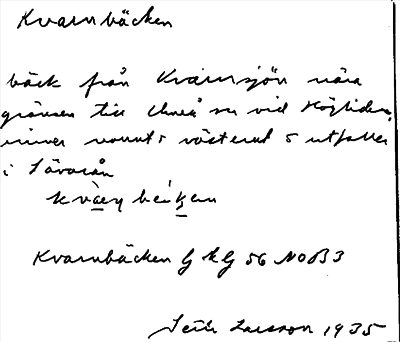 Kvarnbäcken
bäck från Kvarnsjön nära
gränsen till Umeå sn vid Högliden,
rinner norrut o västerut o utfaller
i Sävarån
kvaɳ beḱen
Kvarnbäcken GKG 56 NOB3
Seth Larsson 1935